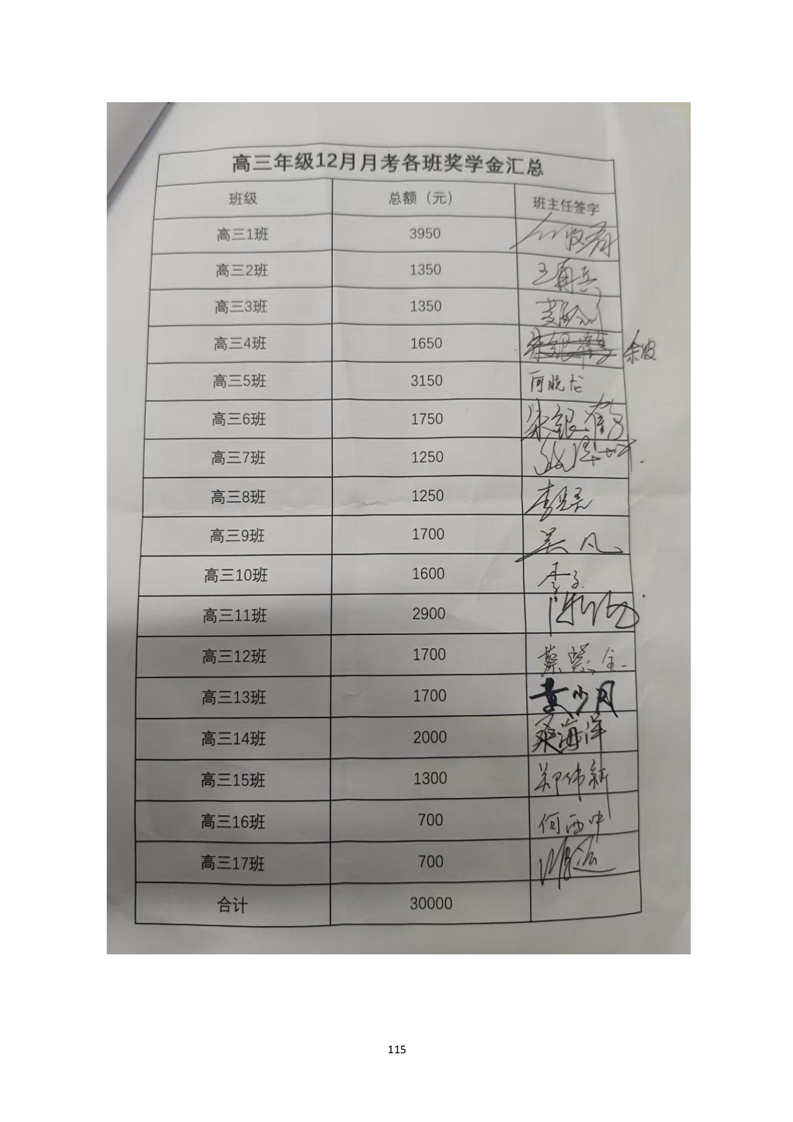 高三年级12月月考各班奖学金汇总
班级 总额（元） 班主任签字
高三1班 3950
高三2班 1350
高三3班 1350
高三4班 1650 余波
高三5班 3150 何晓龙
高三6班 1750 宋银鹤
高三7班 1250
高三8班 1250
高三9班 1700 吴凡
高三10班 1600 李子
高三11班 2900
高三12班 1700
高三13班 1700 黄少月
高三14班 2000 桑海洋
高三15班 1300 郑伟新
高三16班 700 何西中
高三17班 700
合计 30000
115